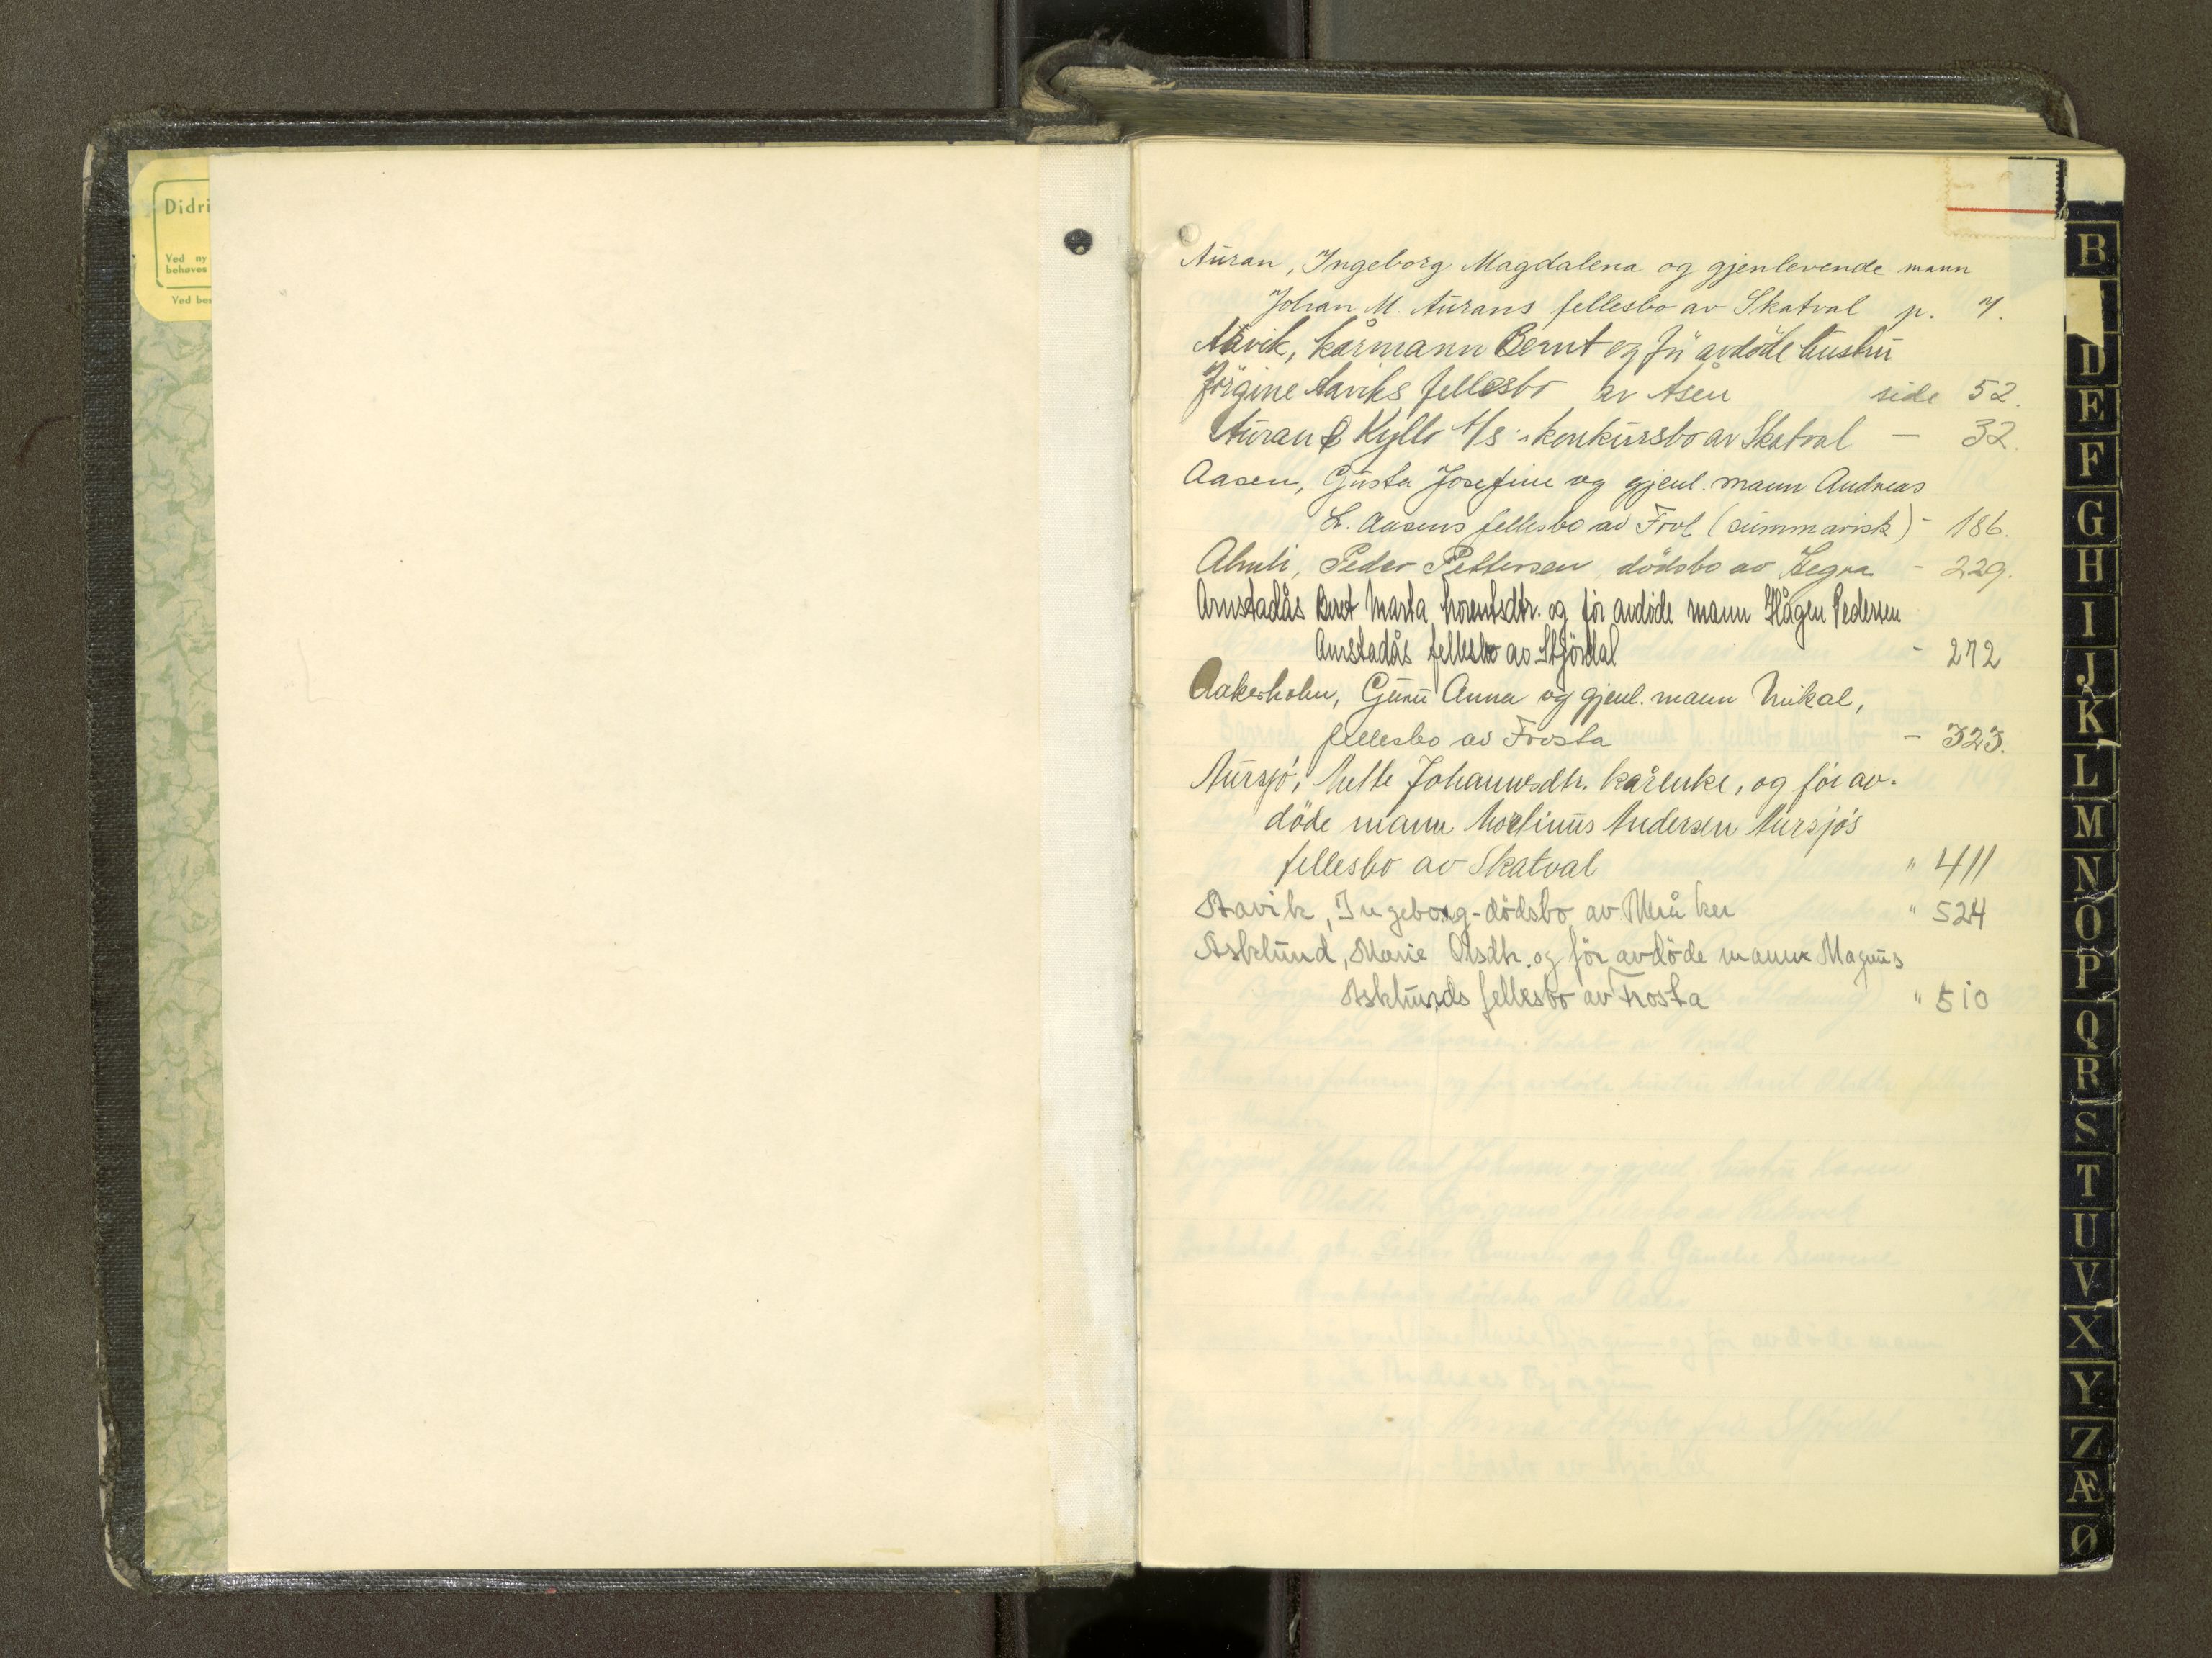 Didri
Ved ny
behøves
Ved be
Auran, Ingeborg Magdalena og gjenlevende mann
Johan M. Aurans fellesbo av Skatval p. 7.
Aavik, kårmann Bernt og før avdöde hustru
Jörgine Aaviks fellesbo av Åsen side 52.
Auran & Kyllo A/S konkursbo av Skatval — 32.
Aasen, Gusta Josefine og gjenl. mann Andreas
L. Aasens fellesbo av Frol (summarisk) - 186.
Almli, Peder Pettersen dödsbo av Hegra - 229.
Arnstadås Beret Marta Lorentsdtr. og för avdöde mann Hågen Pedersen
Arnstadås fellesbo av Stjördal - 272
Aakerholm, Guru Anna og gjenl. mann Mikal,
fellesbo av Frosta - 323.
Aursjö, Mette Johannesdtr. kårenke, og för av-
döde mann Martinus Andersen Aursjö's
fellesbo av Skatval " 411
Aavik, Ingeborg - dödsbo av Meråker " 524
Asklund, Marie Olsdtr. og för avdöde mann Magnus
Asklunds fellesbo av Frosta " 510
B
D
E
F
G
H
I
J
K
L
M
N
O
P
Q
R
S
T
U
V
X
Y
Z
Æ
Ø